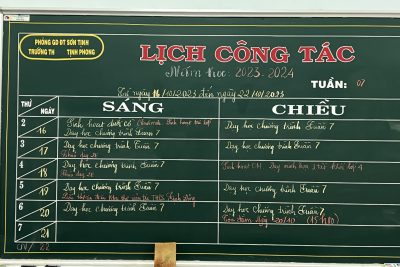 PHÒNG GD ĐT SƠN TỊNH
TRƯỜNG TH TỊNH PHONG
LỊCH CÔNG TÁC
Năm học: 2023-2024
TUẦN: 07
Từ ngày 16/10/2023 đến ngày 22/10/2023
THỨ NGÀY
SÁNG
CHIỀU
2
16
Sinh hoạt dưới cờ
Dạy học chương trình tuần 7
Dạy học chương trình Tuần 7
3
17
Dạy học chương trình Tuần 7
Dạy học chương trình Tuần 7
4
18
Dạy học chương trình Tuần 7
Sinh hoạt CM. Dạy minh họa 3 tiết Khối lớp 4
5
19
Dạy học chương trình Tuần 7
Dạy học chương trình Tuần 7
6
20
Dạy học chương trình Tuần 7
Dạy học chương trình Tuần 7
Tọa đàm ngày 20/10
7
21
CN/22